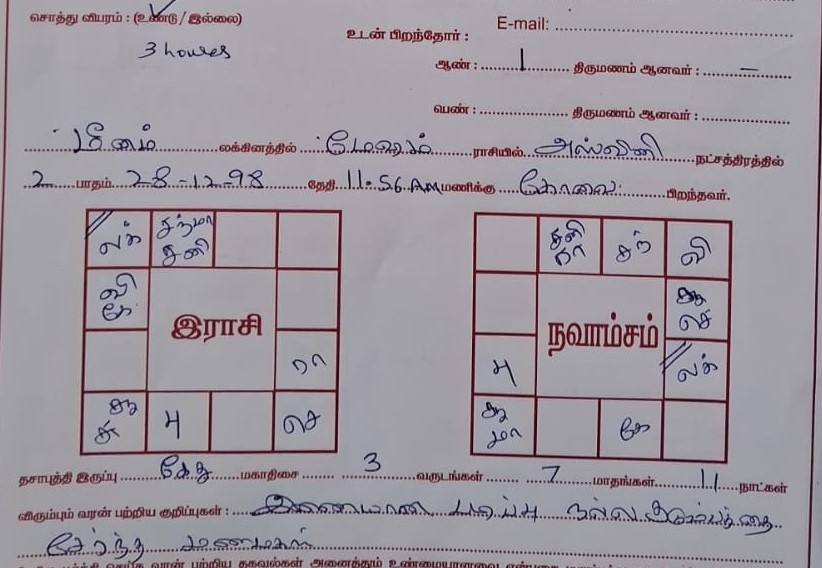 சொத்து விபரம் : (உண்டு / இல்லை)
3 houses
E-mail:
உடன் பிறந்தோர் :
ஆண் : 1 திருமணம் ஆனவர் : –
பெண் : திருமணம் ஆனவர் :
மீனம் லக்கினத்தில் மேஷம் ராசியில் அஸ்வினி நட்சத்திரத்தில்
2 பாதம் 28-12-98 தேதி 11.56 AM மணிக்கு கோவை பிறந்தவர்.
லக் சந்மா
சனி
வி
கே
இராசி
ரா
சூ
சு
பு
செ
சனி
ரா
சந்
வி
சூ
செ
நவாம்சம்
பு
லக்
சு
மா
கே
தசாபுத்தி இருப்பு கேது மகாதிசை 3 வருடங்கள் 7 மாதங்கள் 11 நாட்கள்
விரும்பும் வரன் பற்றிய குறிப்புகள் : இணையான படிப்பு நல்ல குடும்பத்தை
சேர்ந்த மணமகள்
வரன் பற்றிய தகவல்கள் அனைத்தும் உண்மையானவை